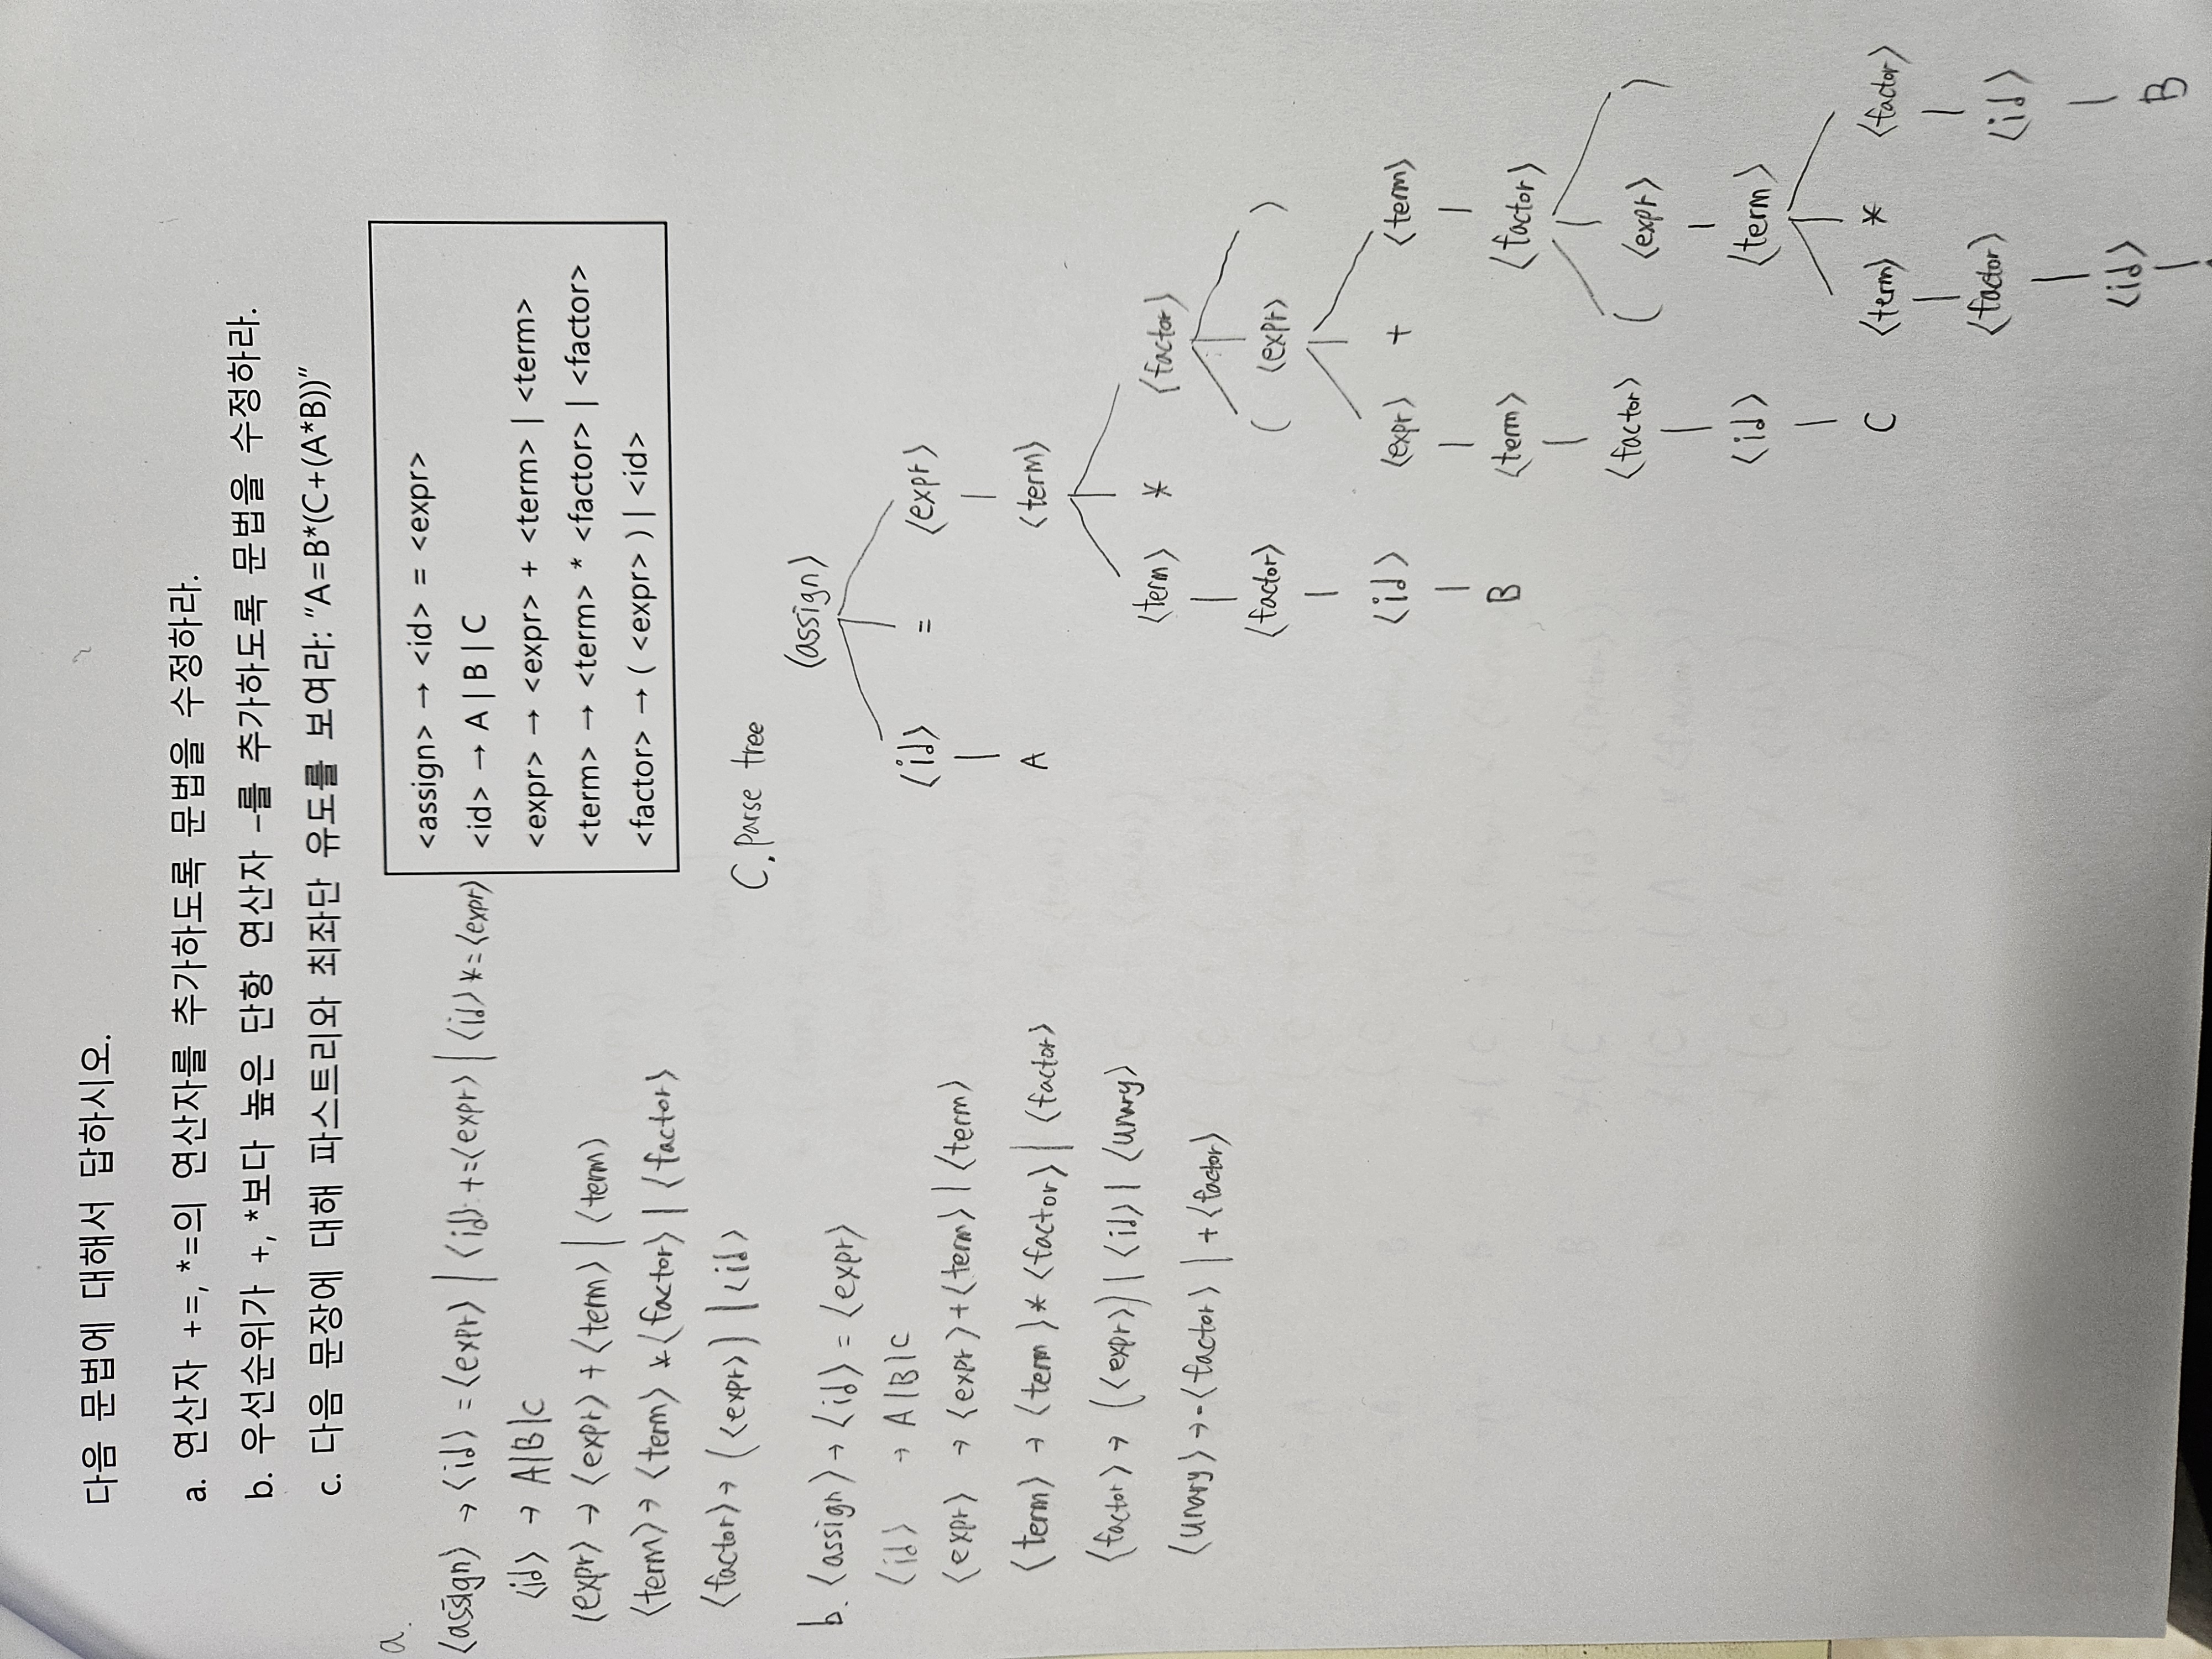 다음 문법에 대해서 답하시오.
a. 연산자 +=, *=의 연산자를 추가하도록 문법을 수정하라.
b. 우선순위가 +, *보다 높은 단항 연산자 –를 추가하도록 문법을 수정하라.
c. 다음 문장에 대해 파스트리와 최좌단 유도를 보여라: “A=B*(C+(A*B))”
<assign> → <id> = <expr>
<id> → A | B | C
<expr> → <expr> + <term> | <term>
<term> → <term> * <factor> | <factor>
<factor> → ( <expr> ) | <id>
a.
<assign> → <id> = <expr> | <id> += <expr> | <id> *= <expr>
<id> → A|B|C
<expr> → <expr> + <term> | <term>
<term> → <term> * <factor> | <factor>
<factor> → (<expr>) | <id>
b. <assign> → <id> = <expr>
<id> → A|B|C
<expr> → <expr> + <term> | <term>
<term> → <term> * <factor> | <factor>
<factor> → (<expr>) | <id> | <unary>
<unary> → -<factor> | +<factor>
C. Parse tree
<assign>
<id> = <expr>
A <term>
<term> * <factor>
<factor> ( <expr> )
<id> <expr> + <term>
B <term> <factor>
<factor> ( <expr> )
<id> <term>
C <term> * <factor>
<factor> <id>
<id> B